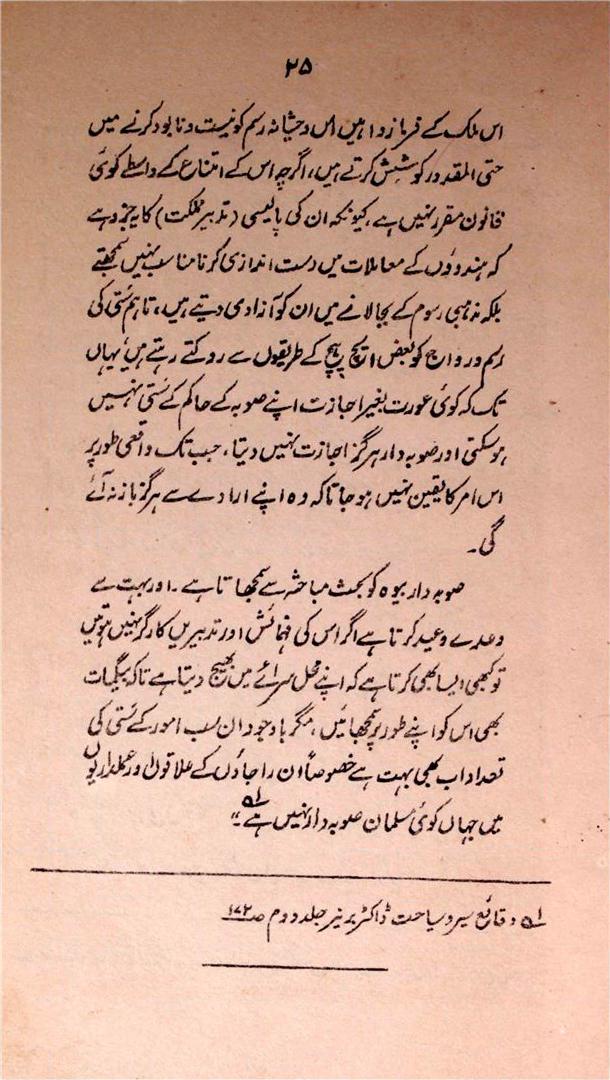 ۲۵
اس ملک کے فرمانروا ہیں اس وحشیانہ رسم کو نیست و نابود کرنے میں
حتی المقدور کوشش کرتے ہیں، اگرچہ اس کے امتناع کے واسطے کوئی
قانون مقرر نہیں ہے، کیونکہ ان کی پالیسی (تدبیر مملکت) کا یہ جزو ہے
کہ ہندوؤں کے معاملات میں دست اندازی کرنا مناسب نہیں سمجھتے
بلکہ مذہبی رسوم کے بجا لانے میں ان کو آزادی دیتے ہیں، تاہم ستی کی
رسم و رواج کو بعض ایچ پیچ کے طریقوں سے روکتے رہتے ہیں، یہاں
تک کہ کوئی عورت بغیر اجازت اپنے صوبہ کے حاکم کے ستی نہیں
ہو سکتی اور صوبہ دار ہرگز اجازت نہیں دیتا، جب تک واقعی طور پر
اس امر کا یقین نہیں ہو جاتا کہ وہ اپنے ارادے سے ہرگز باز نہ آئے
گی۔
صوبہ دار بیوہ کو بحث مباحثہ سے سمجھاتا ہے۔ اور بہت سے
وعدے وعید کرتا ہے اگر اس کی فہمائش اور تدبیریں کارگر نہیں ہوتیں
تو کبھی ایسا بھی کرتا ہے کہ اپنے محل سرائے میں بھیج دیتا ہے تاکہ بیگمات
بھی اس کو اپنے طور پر سمجھائیں، مگر باوجود ان سب امور کے ستی کی
تعداد اب بھی بہت ہے خصوصاً ان راجاؤں کے علاقوں اور عملداریوں
میں جہاں کوئی مسلمان صوبہ دار نہیں ہے۔" ؎۱
؎۱ وقائع سیر و سیاحت ڈاکٹر برنیر جلد دوم ص۱۷۲